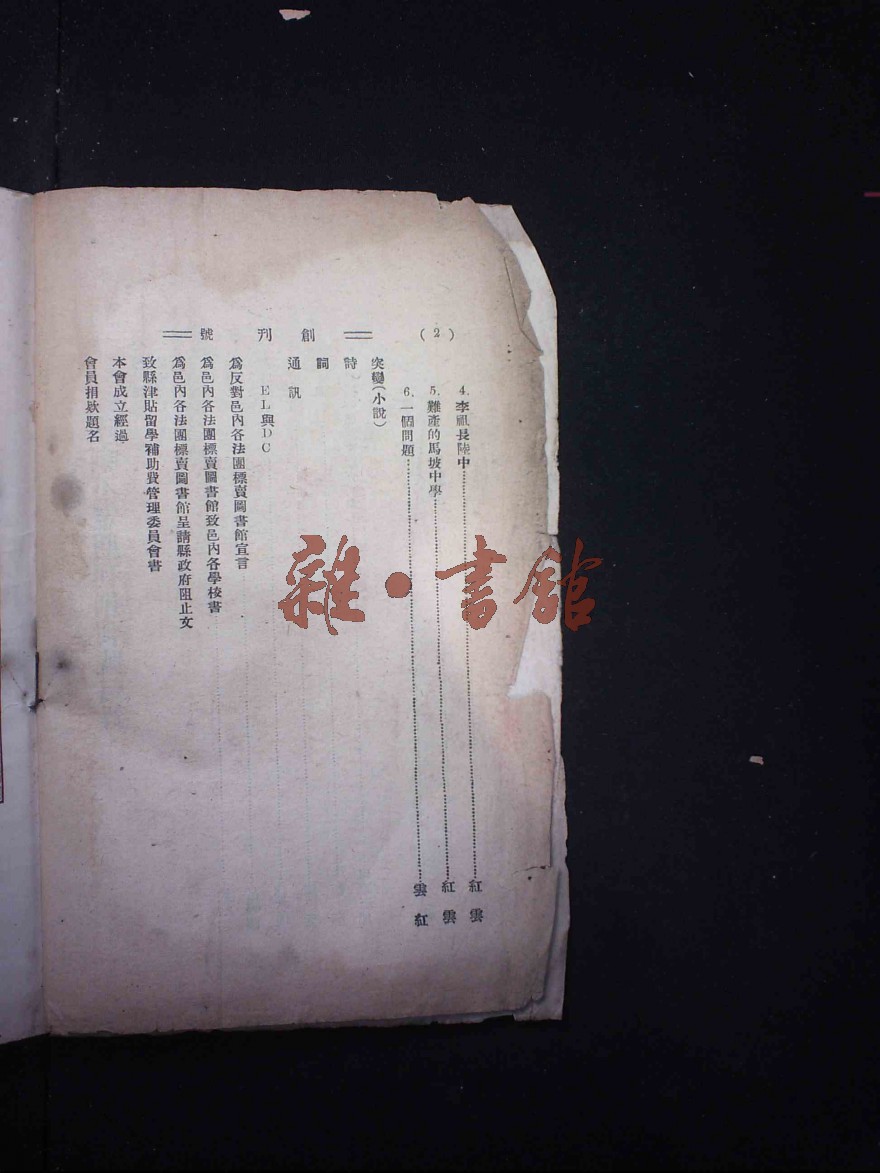 (2)
創刊號
4. 李祖長陸中……紅雲
5. 難產的馬坡中學……紅雲
6. 一個問題……雲紅
突變(小說)
詩
詞
通訊
EL與DC
爲反對邑內各法團標賣圖書館宣言
爲邑內各法團標賣圖書館致邑內各學校書
爲邑內各法團標賣圖書館呈請縣政府阻止文
致縣津貼留學補助費管理委員會書
本會成立經過
會員捐欵題名
雜·書館